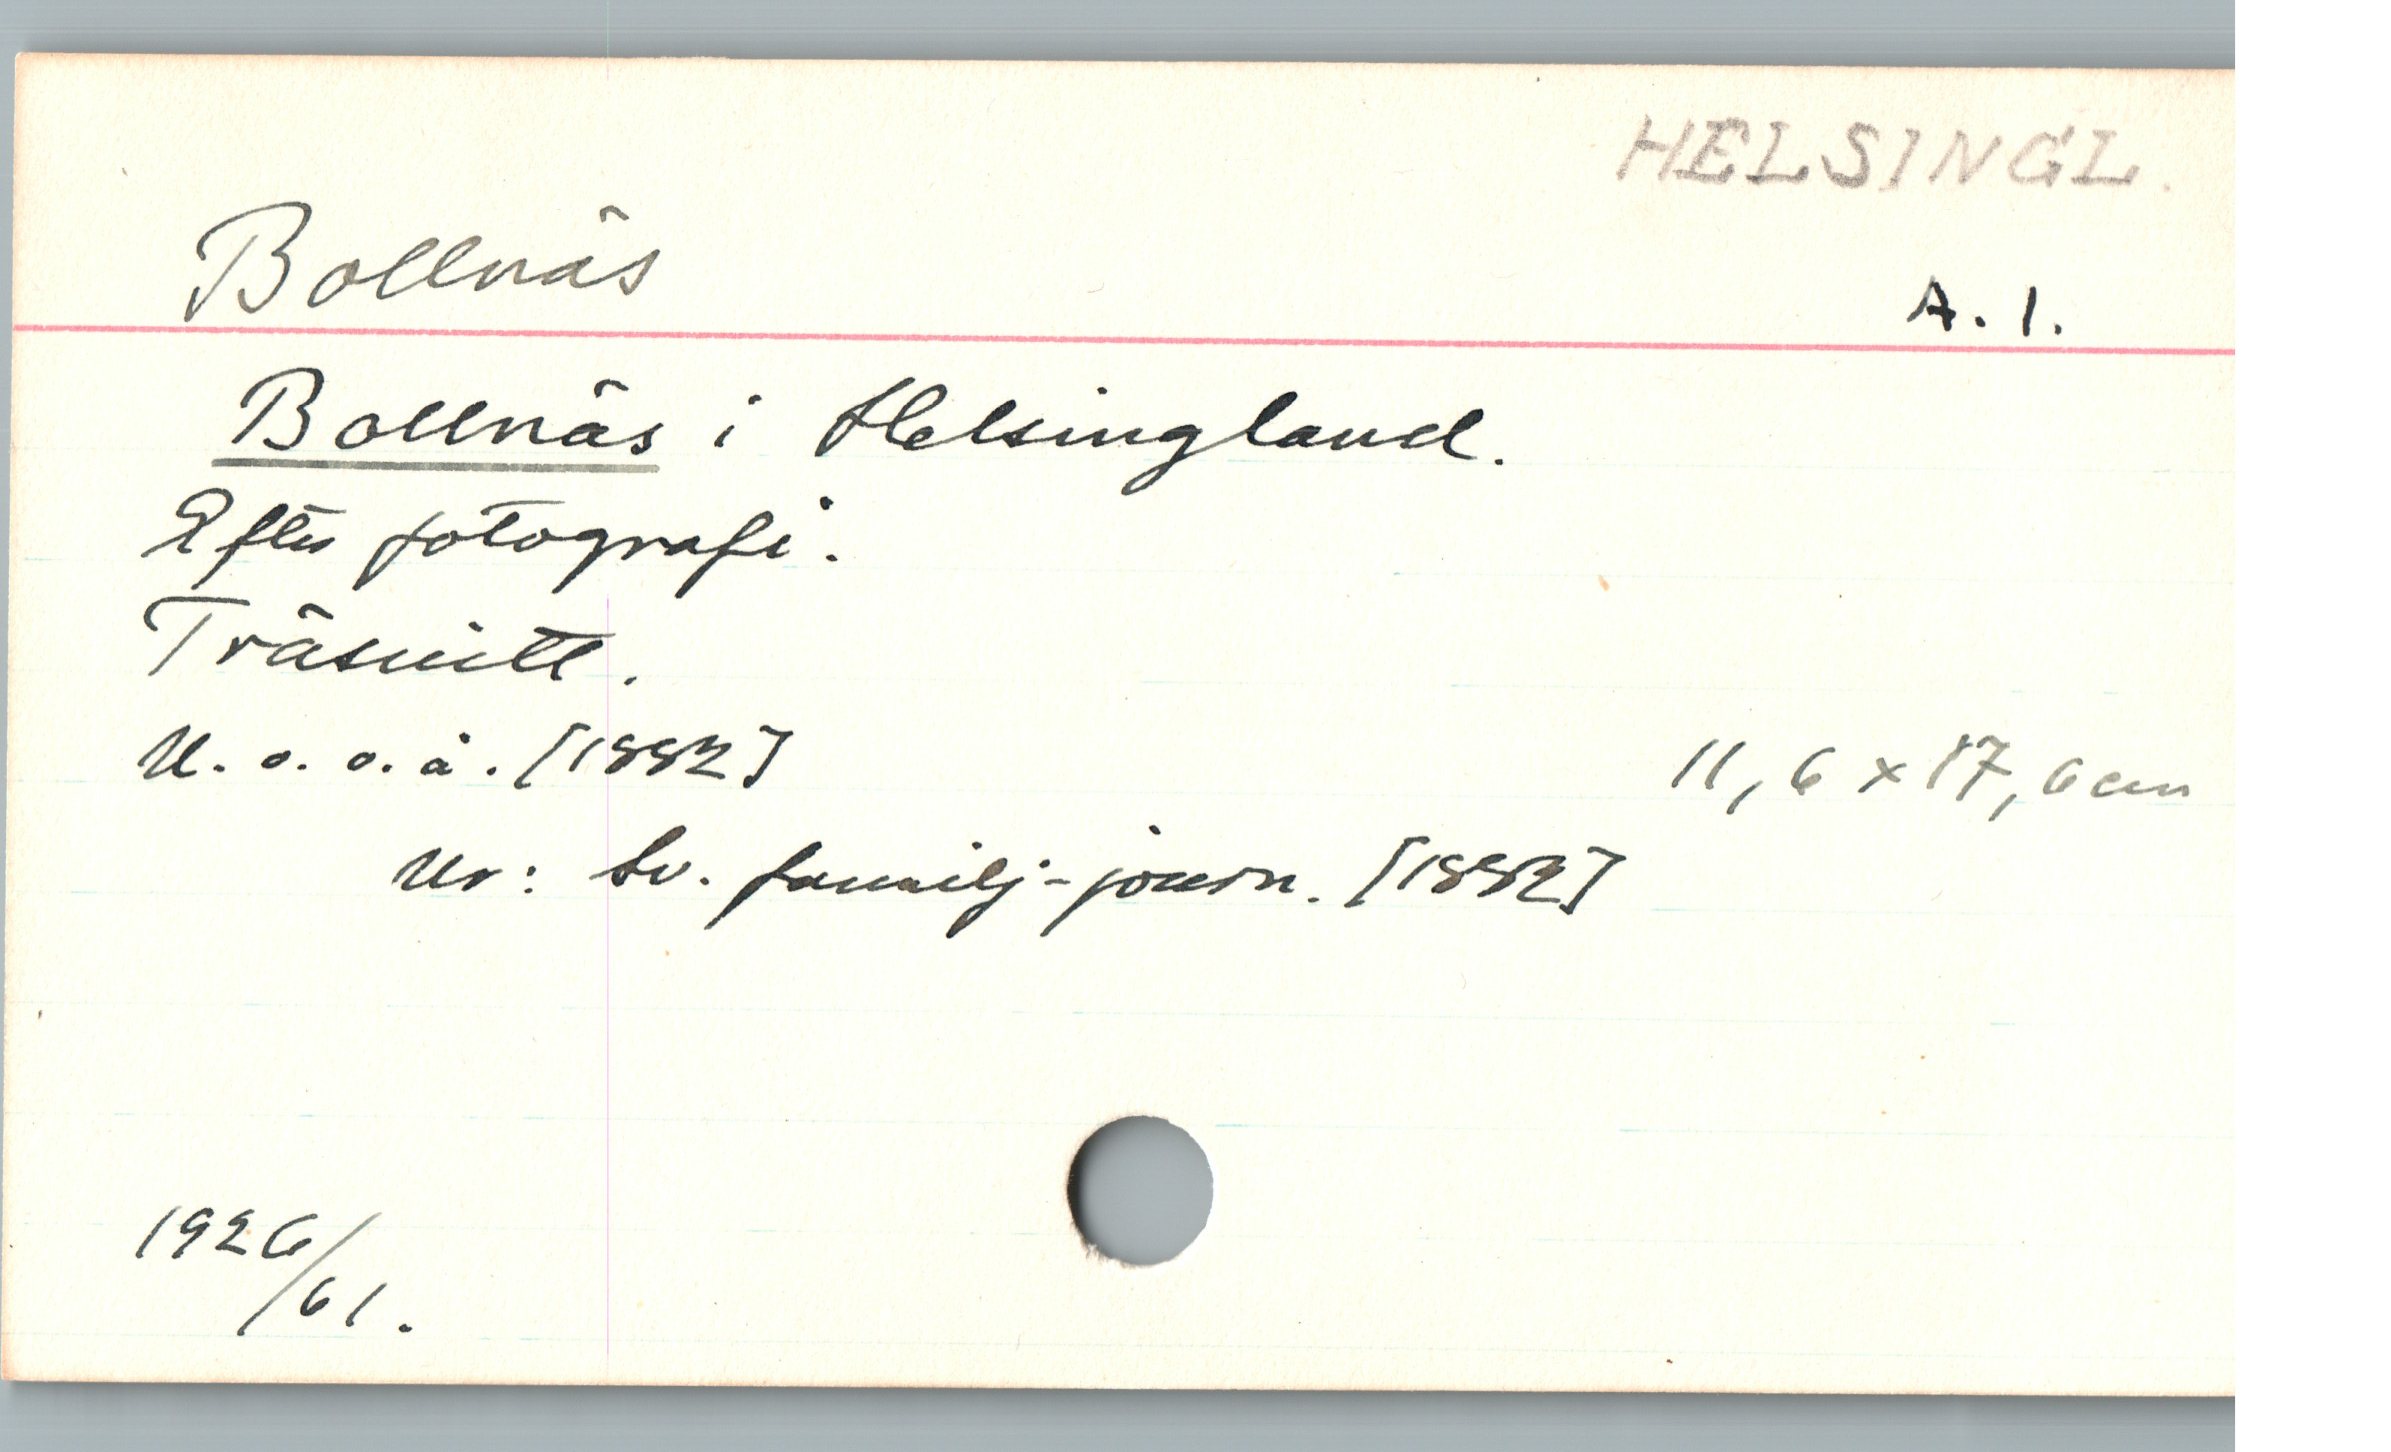 HELSINGL.
Bollnäs
A. 1.
Bollnäs i Helsingland.
Efter fotografi.
Träsnitt.
U. o. o. å. [1882]
11,6 x 17,6 cm
Ur: Sv. familj-journ. [1882]
1926/61.